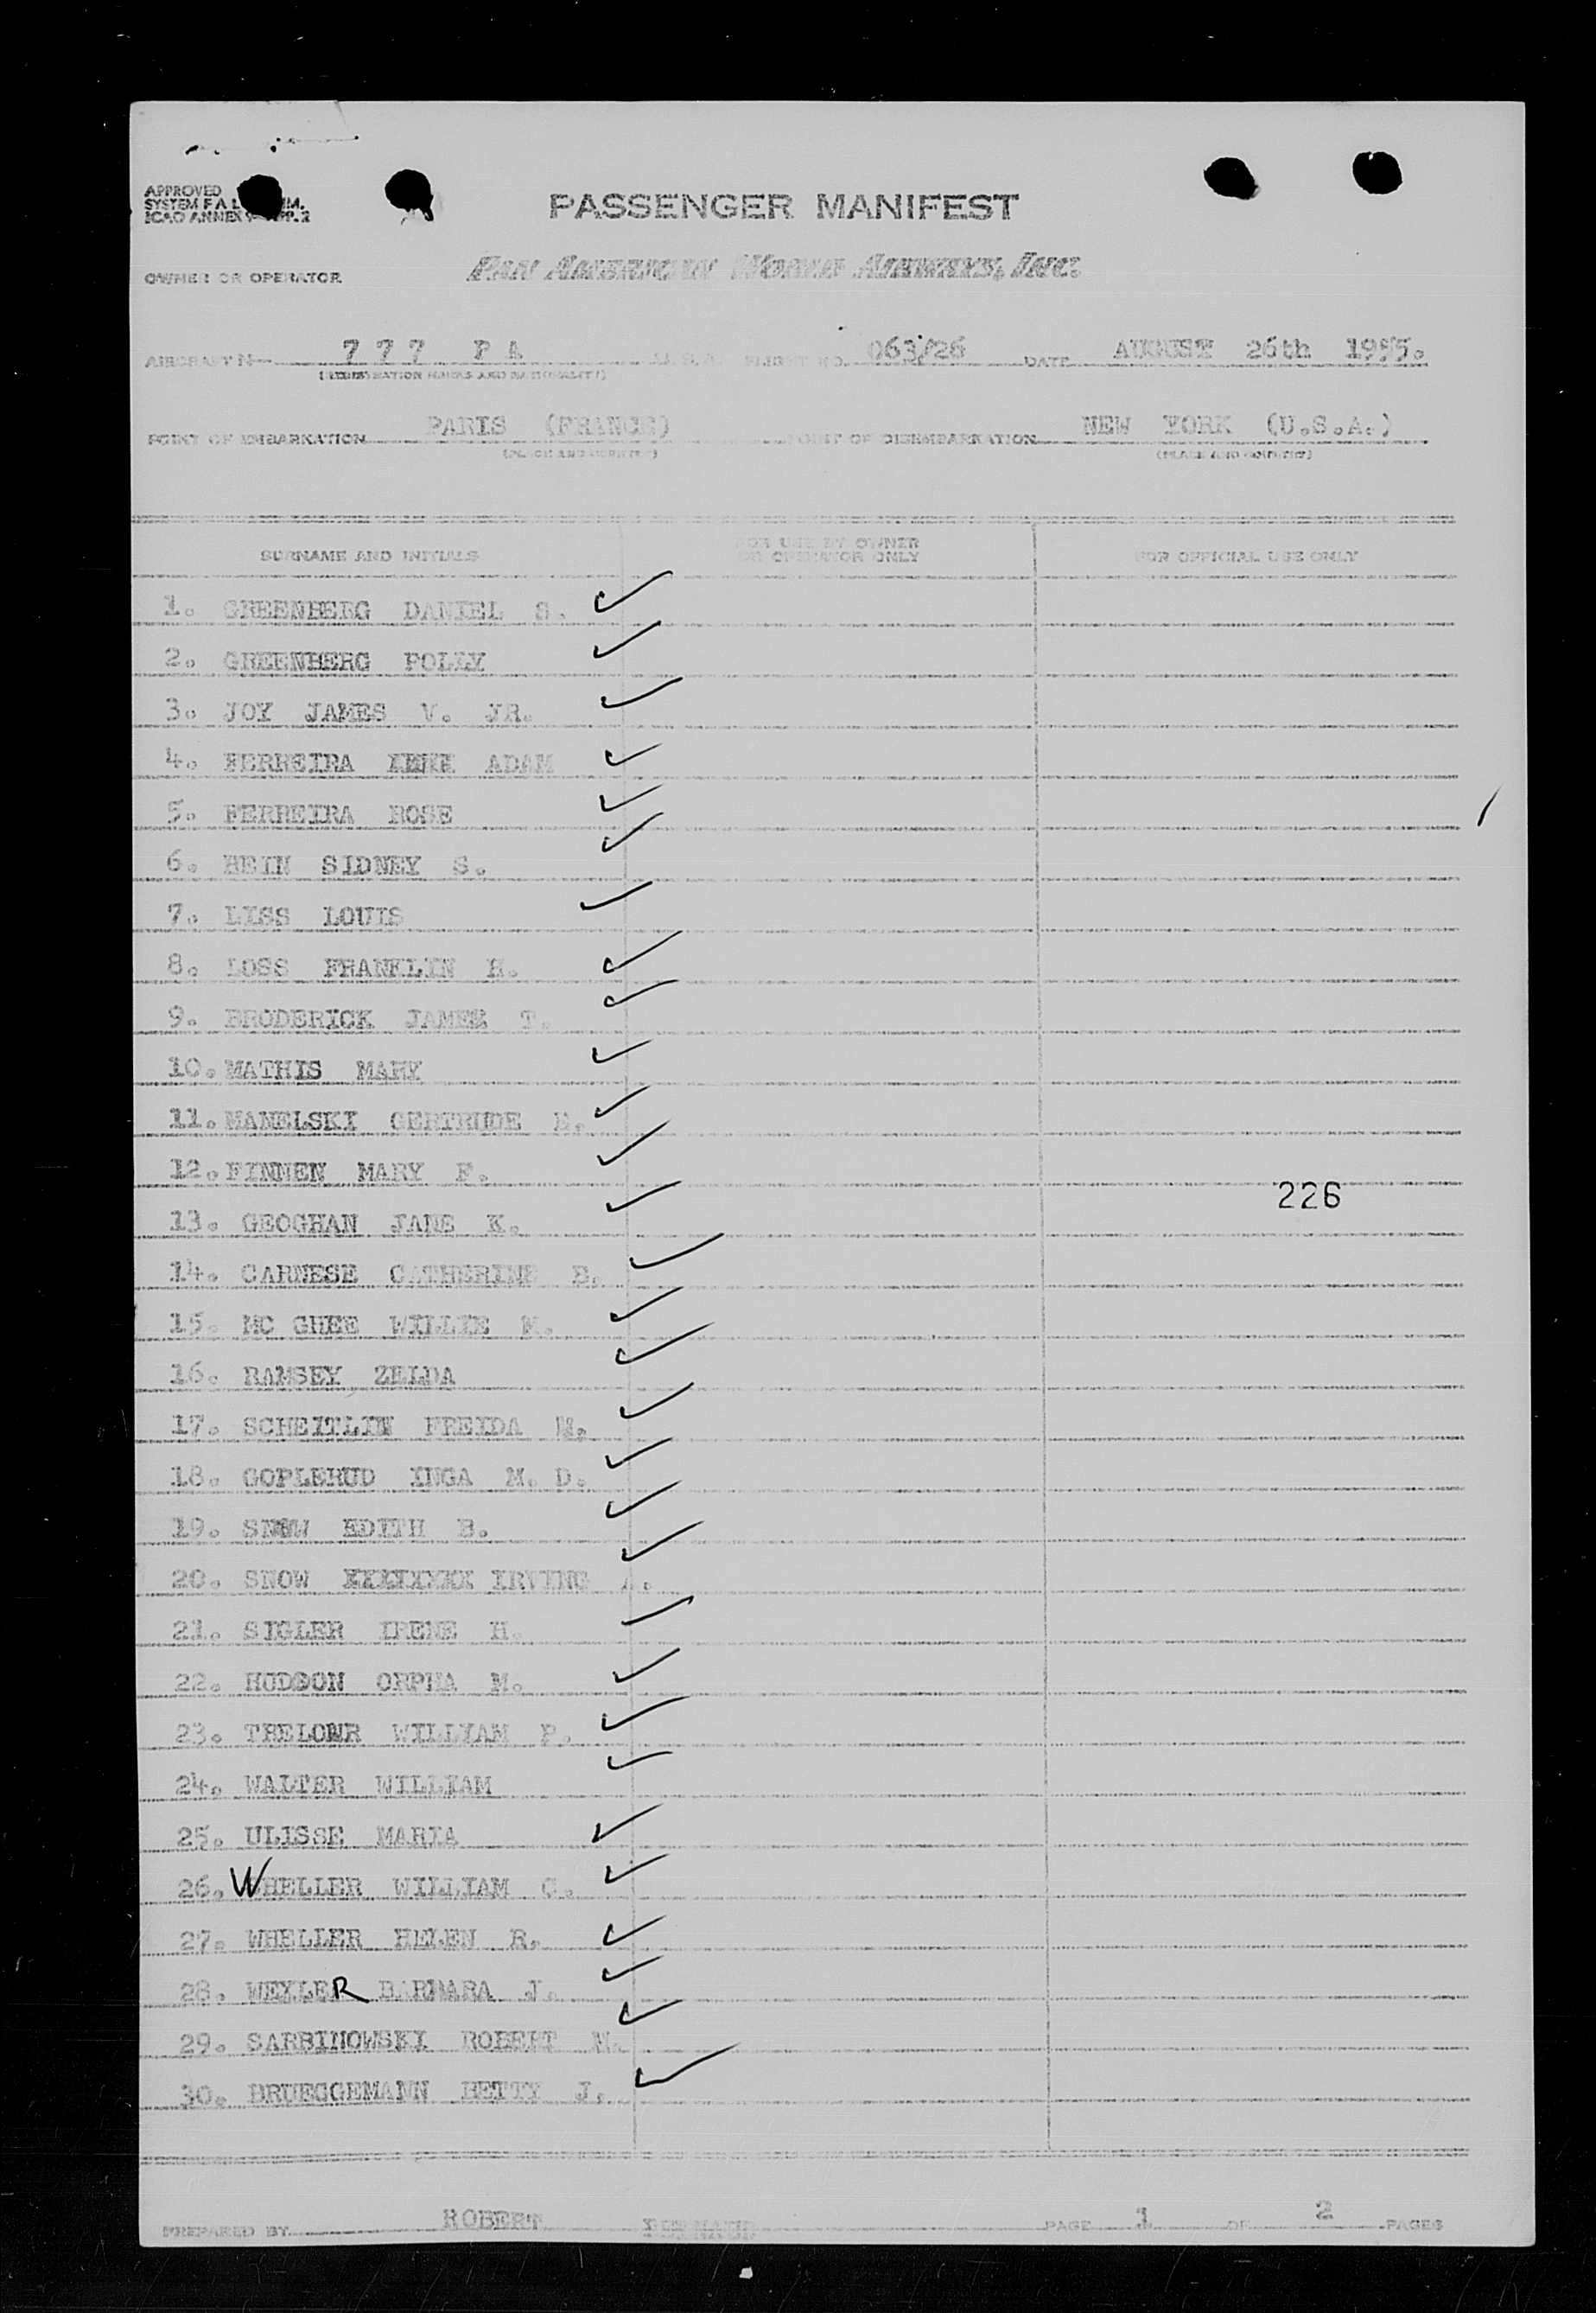 APPROVED
SYSTEM F A L
ICAO ANNEX 9 APP. 2
PASSENGER MANIFEST
OWNER OR OPERATOR PAN AMERICAN WORLD AIRWAYS, INC.
AIRCRAFT N 777 PA U.S.A. FLIGHT NO. 063/26 DATE AUGUST 26th 1955.
(REGISTRATION MARKS AND NATIONALITY)
POINT OF EMBARKATION PARIS (FRANCE) POINT OF DISEMBARKATION NEW YORK (U.S.A.)
(PLACE AND COUNTRY) (PLACE AND COUNTRY)
SURNAME AND INITIALS FOR USE BY OWNER OR OPERATOR ONLY FOR OFFICIAL USE ONLY
1. GREENBERG DANIEL S.
2. GREENBERG POLLY
3. JOY JAMES V. JR.
4. FERREIRA ADAM
5. FERREIRA ROSE
6. HEIN SIDNEY S.
7. LISS LOUIS
8. LOSS FRANKLIN H.
9. BRODERICK JAMES T.
10. MATHIS MARY
11. MANELSKI GERTRUDE E.
12. FINNEN MARY F.
226
13. GEOGHAN JANE K.
14. CARNESE CATHERINE B.
15. MC GHEE WILLIE M.
16. RAMSEY ZELDA
17. SCHEITLIN FREIDA M.
18. GOPLERUD INGA M. D.
19. SNOW EDITH B.
20. SNOW IRVING A.
21. SIGLER IRENE H.
22. HUDSON ORPHA M.
23. TRELOWR WILLIAM P.
24. WALTER WILLIAM
25. ULISSE MARIA
26. WHELLER WILLIAM G.
27. WHELLER HELEN R.
28. WEXLER BARBARA J.
29. SARBINOWSKI ROBERT M.
30. BRUEGGEMANN BETTY J.
PREPARED BY ROBERT PAGE 1 OF 2 PAGES